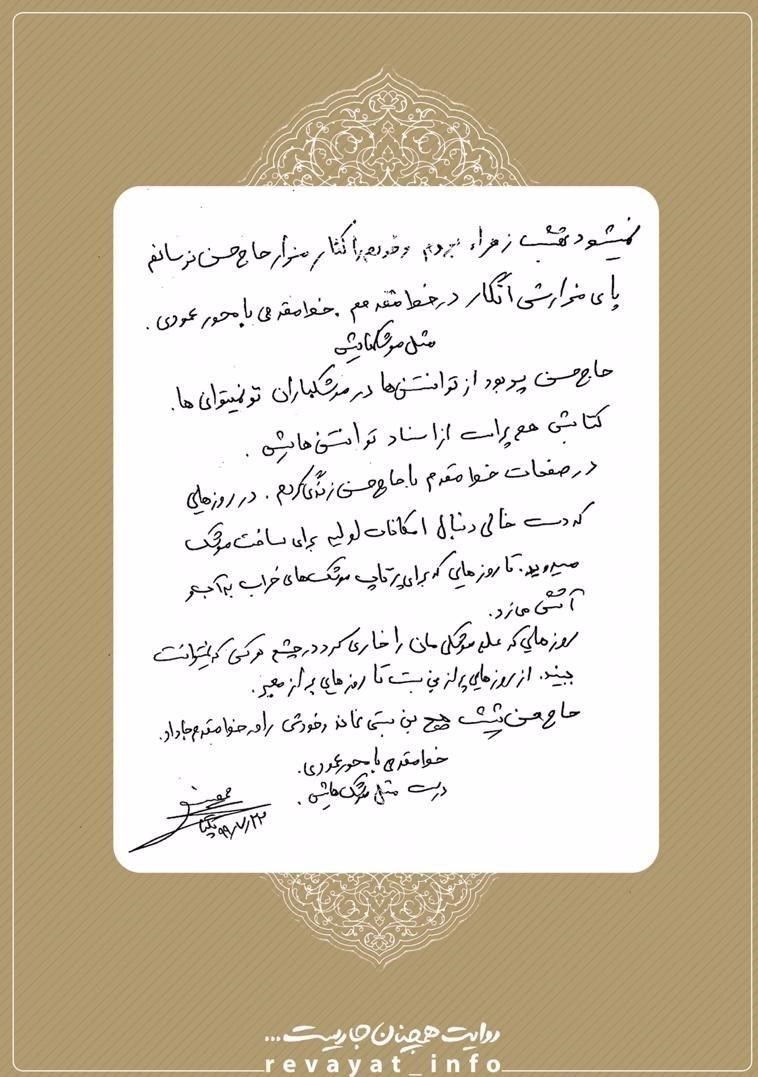 نمیشود بهشت زهراء بروم و خودم را کنار مزار حاج حسن نرسانم
پای مزارش انگار در خط مقدمم. خط مقدمی با محور عمودی.
مثل موشکهایش
حاج حسن پر بود از توانستن‌ها در موشکباران تو نمیتوانی ها.
کتابش هم پر است از اسناد توانستن هایش.
در صفحات خط مقدم با حاج حسن زندگی کردم. در روزهایی
که دست خالی دنبال امکانات اولیه برای ساخت موشک
میدوید. تا روزهایی که برای پرتاپ موشک‌های خراب به آب و
آتش می‌زد.
روزهایی که علم موشکی مان را خاری کرد در چشم هر کسی که نمیتوانست
ببیند. از روزهایی پر از بن بست تا روزهایی پر از معبر.
حاج حسن پشت هیچ بن بستی نماند و خودش را به خط مقدم جا داد.
خط مقدمی با محور عمودی.
درست مثل موشک هایش.
۹۹/۷/۲۳
روایت همچنان جاریست ...
revayat_info